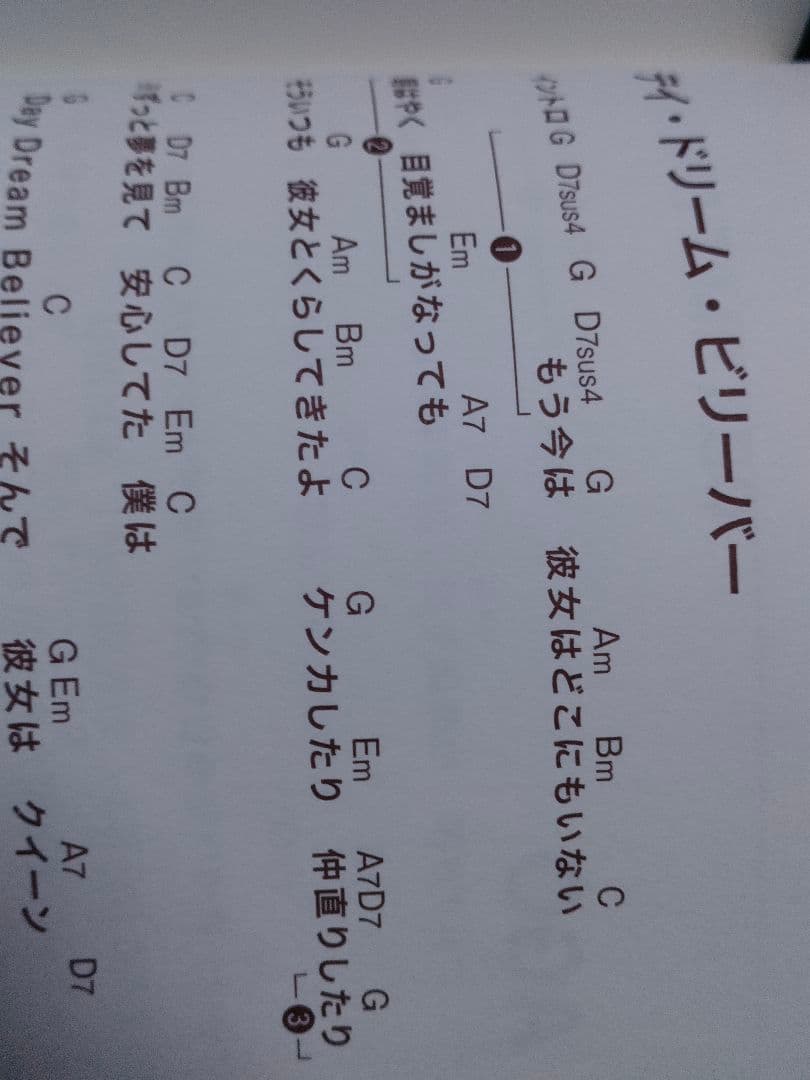 デイ・ドリーム・ビリーバー
イントロ G D7sus4 G D7sus4 G Am Bm C
もう今は 彼女はどこにもいない
❶
G Em A7 D7
朝はやく 目覚ましがなっても
❷
G Am Bm C G Em A7D7 G
そういつも 彼女とくらしてきたよ ケンカしたり 仲直りしたり
❸
C D7 Bm C D7 Em C
ずっと夢を見て 安心してた 僕は
G C G Em A7 D7
Day Dream Believer そんで 彼女は クイーン